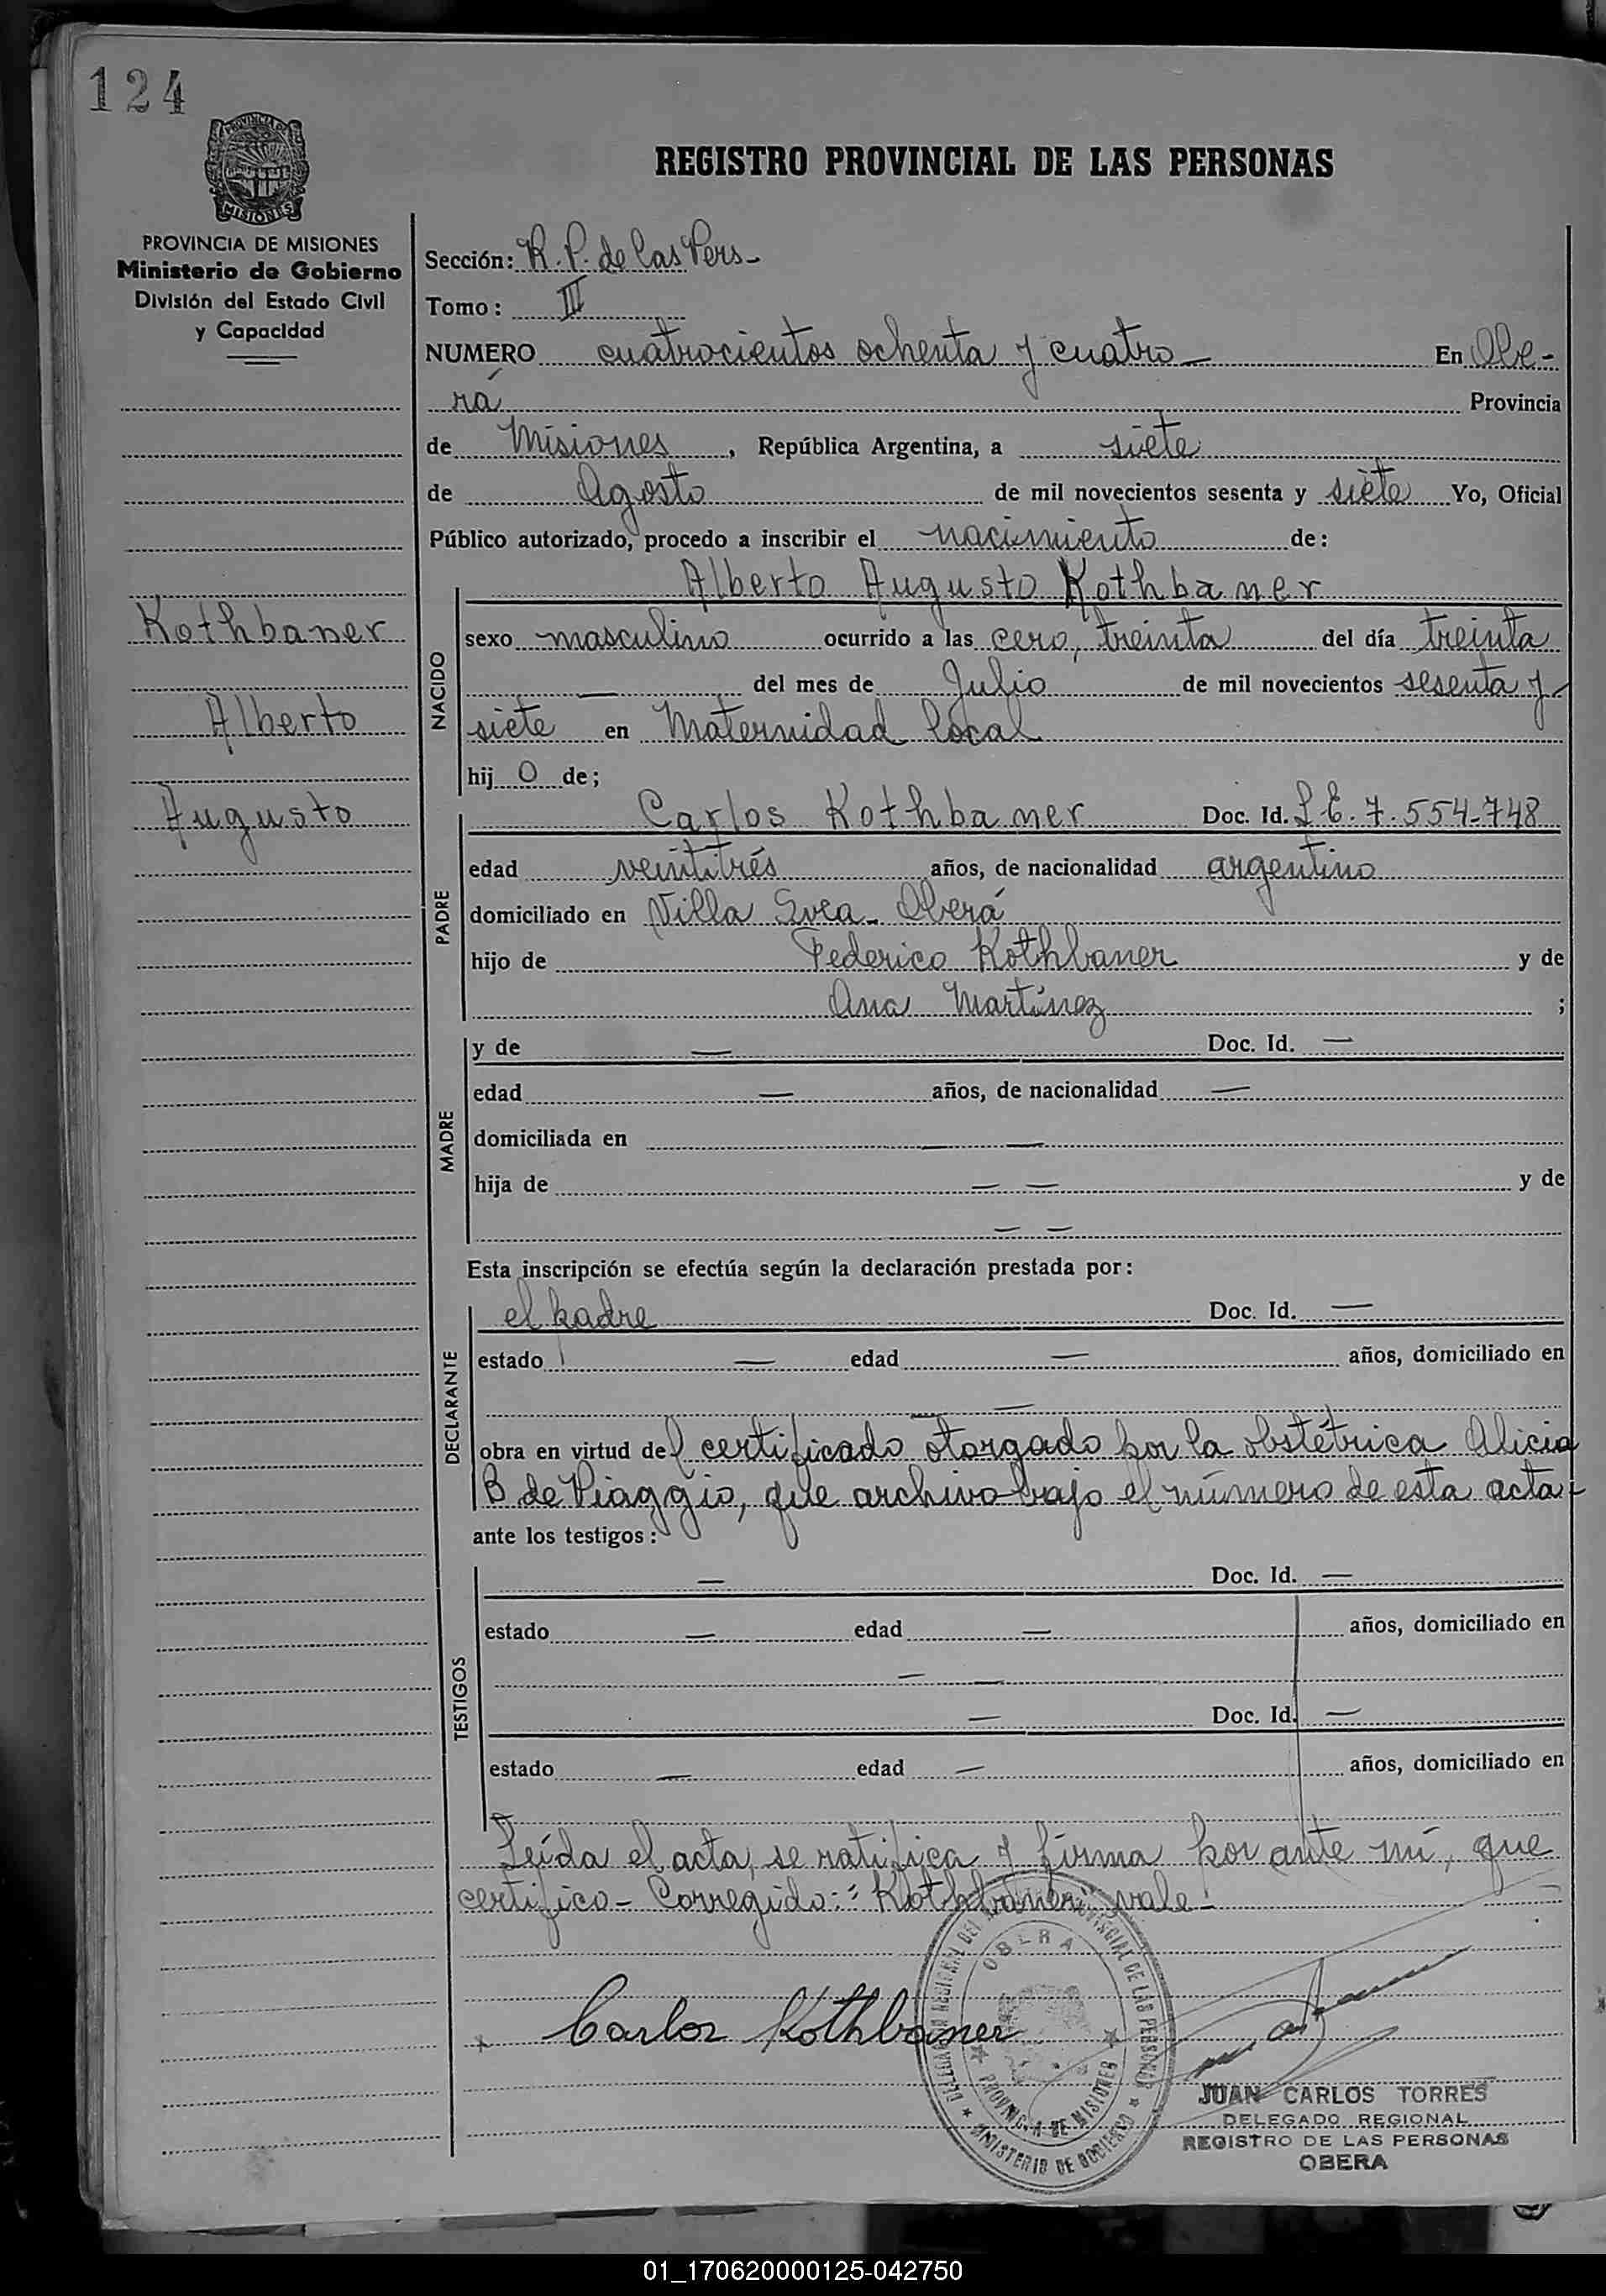 124
PROVINCIA DE MISIONES
REGISTRO PROVINCIAL DE LAS PERSONAS
PROVINCIA DE MISIONES
Ministerio de Gobierno
División del Estado Civil
y Capacidad
Sección: R. P. de las Pers-
Tomo: III
NUMERO cuatrocientos ochenta y cuatro — En Obe-
rá Provincia
de Misiones, República Argentina, a siete
de Agosto de mil novecientos sesenta y siete Yo, Oficial
Público autorizado, procedo a inscribir el nacimiento de:
Kothbaner
Alberto
Augusto
NACIDO
Alberto Augusto Kothbaner
sexo masculino ocurrido a las cero, treinta del día treinta
— del mes de Julio de mil novecientos sesenta y
siete en Maternidad local
hij o de;
PADRE
Carlos Kothbaner Doc. Id. L.E. 7.554.748
edad veintitrés años, de nacionalidad argentino
domiciliado en Villa Svea - Oberá
hijo de Federico Kothbaner y de
Ana Martínez ;
MADRE
y de — Doc. Id. —
edad — años, de nacionalidad —
domiciliada en — —
hija de — — y de
— —
Esta inscripción se efectúa según la declaración prestada por:
DECLARANTE
el padre Doc. Id. —
estado — edad — años, domiciliado en
— —
obra en virtud del certificado otorgado por la obstétrica Alicia
B de Piaggio, que archivo bajo el número de esta acta-
ante los testigos:
TESTIGOS
— Doc. Id. —
estado — edad — años, domiciliado en
— —
— Doc. Id. —
estado — edad — años, domiciliado en
Leída el acta, se ratifica y firma por ante mí, que
certifico - Corregido: "Kothbaner" vale-
Carlos Kothbaner
OBERA
PROVINCIA DE MISIONES
MINISTERIO DE GOBIERNO
JUAN CARLOS TORRES
DELEGADO REGIONAL
REGISTRO DE LAS PERSONAS
OBERA
01_170620000125-042750